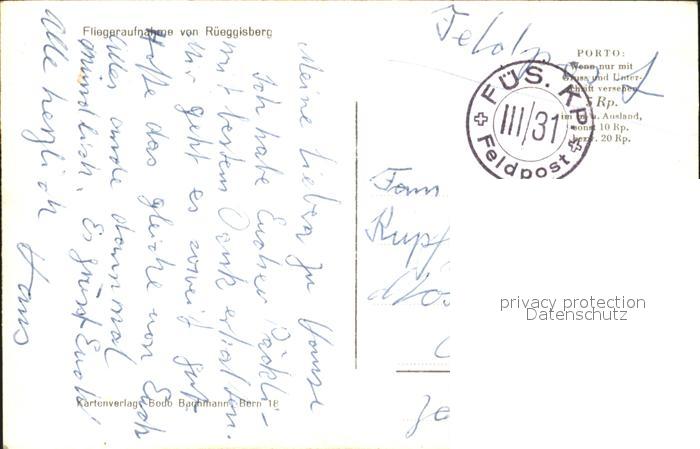 Fliegeraufnahme von Rüeggisberg
Meine Lieben zu Hause
Ich habe Euches Päckli-
mit bestem Dank erhalten.
Mir geht es soweit gut
Hoffe das gleiche von Euch
Alles andere dann mal
mündlich. Es grüsst Euch
Alle herzlich
Hans
Kartenverlag Bodo Bachmann, Bern 18
Feldpost
PORTO:
Wenn nur mit
Gruss und Unter-
schrift versehen
5 Rp.
im u. Ausland,
sonst 10 Rp.
20 Rp.
FÜS. KP.
III/31
Feldpost
Fam
Rupf
privacy protection
Datenschutz